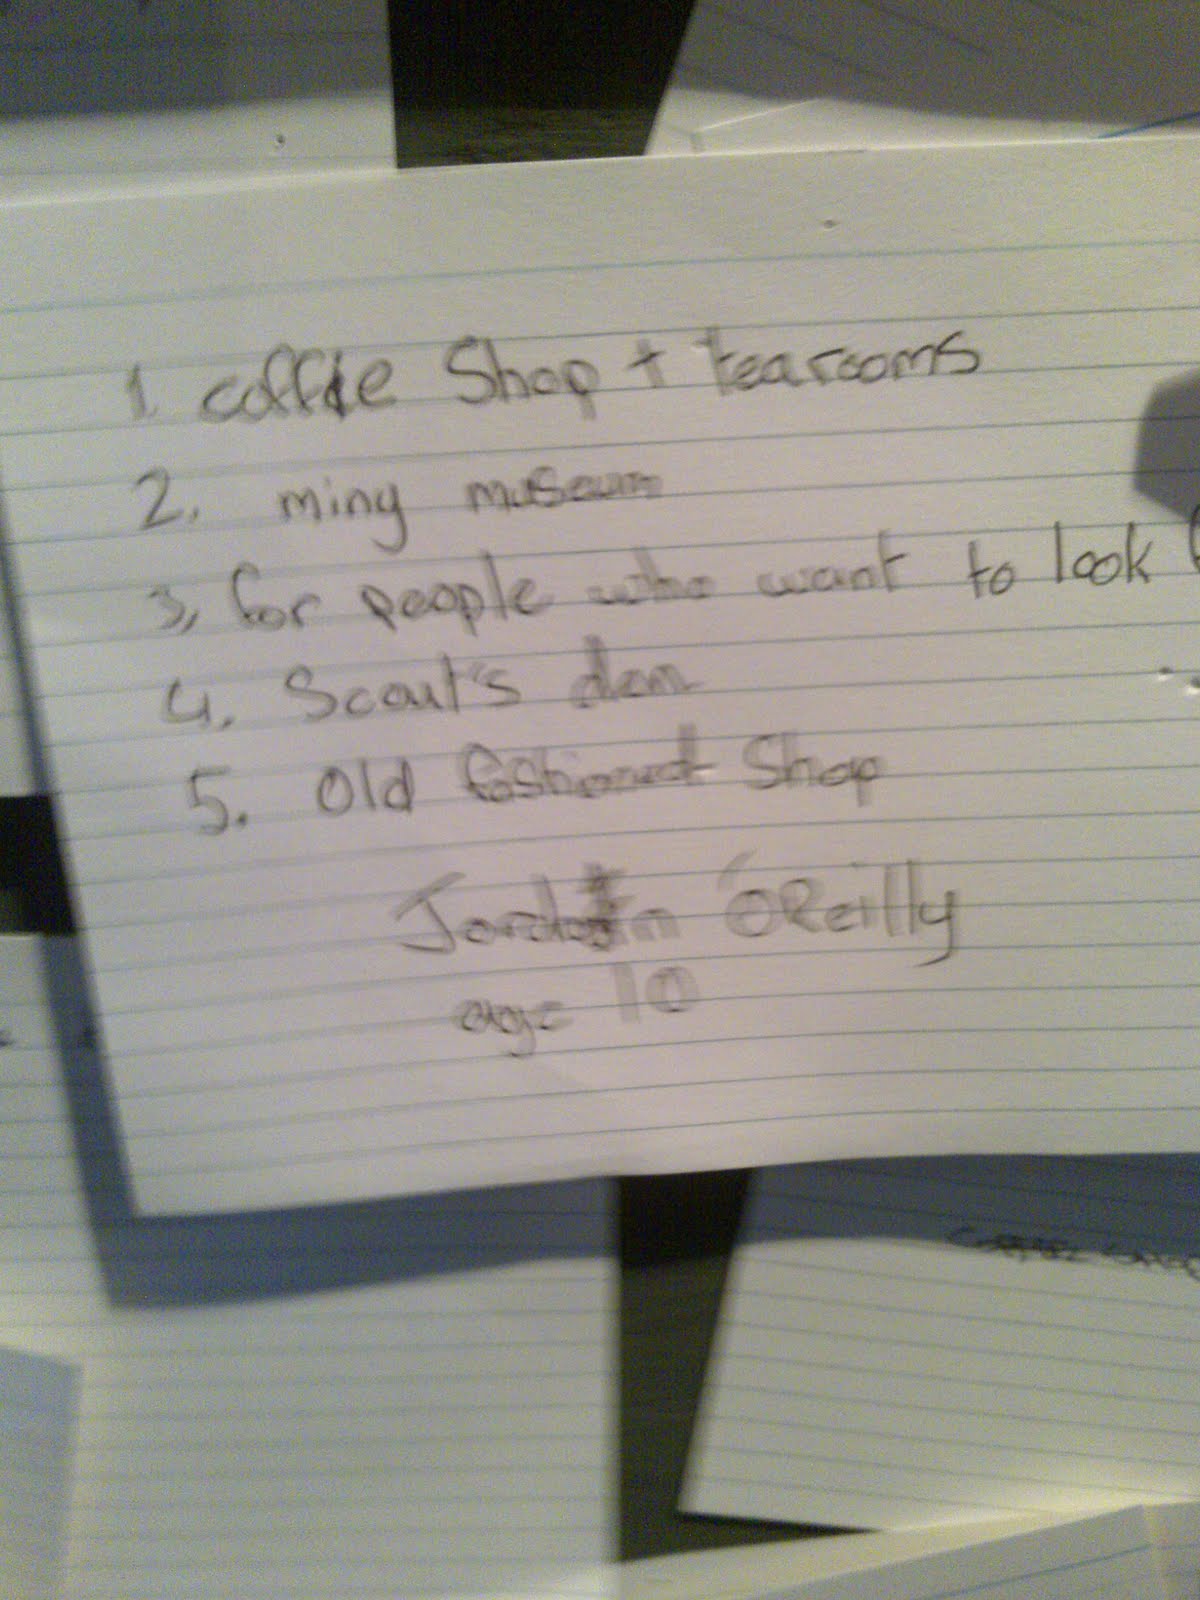 1. coffie Shop + tearooms
2. ming museum
3, for people who want to look
4. Scout's den
5. Old fashioned Shop
Jordan O'Reilly
age 10
COFFEE SHOP